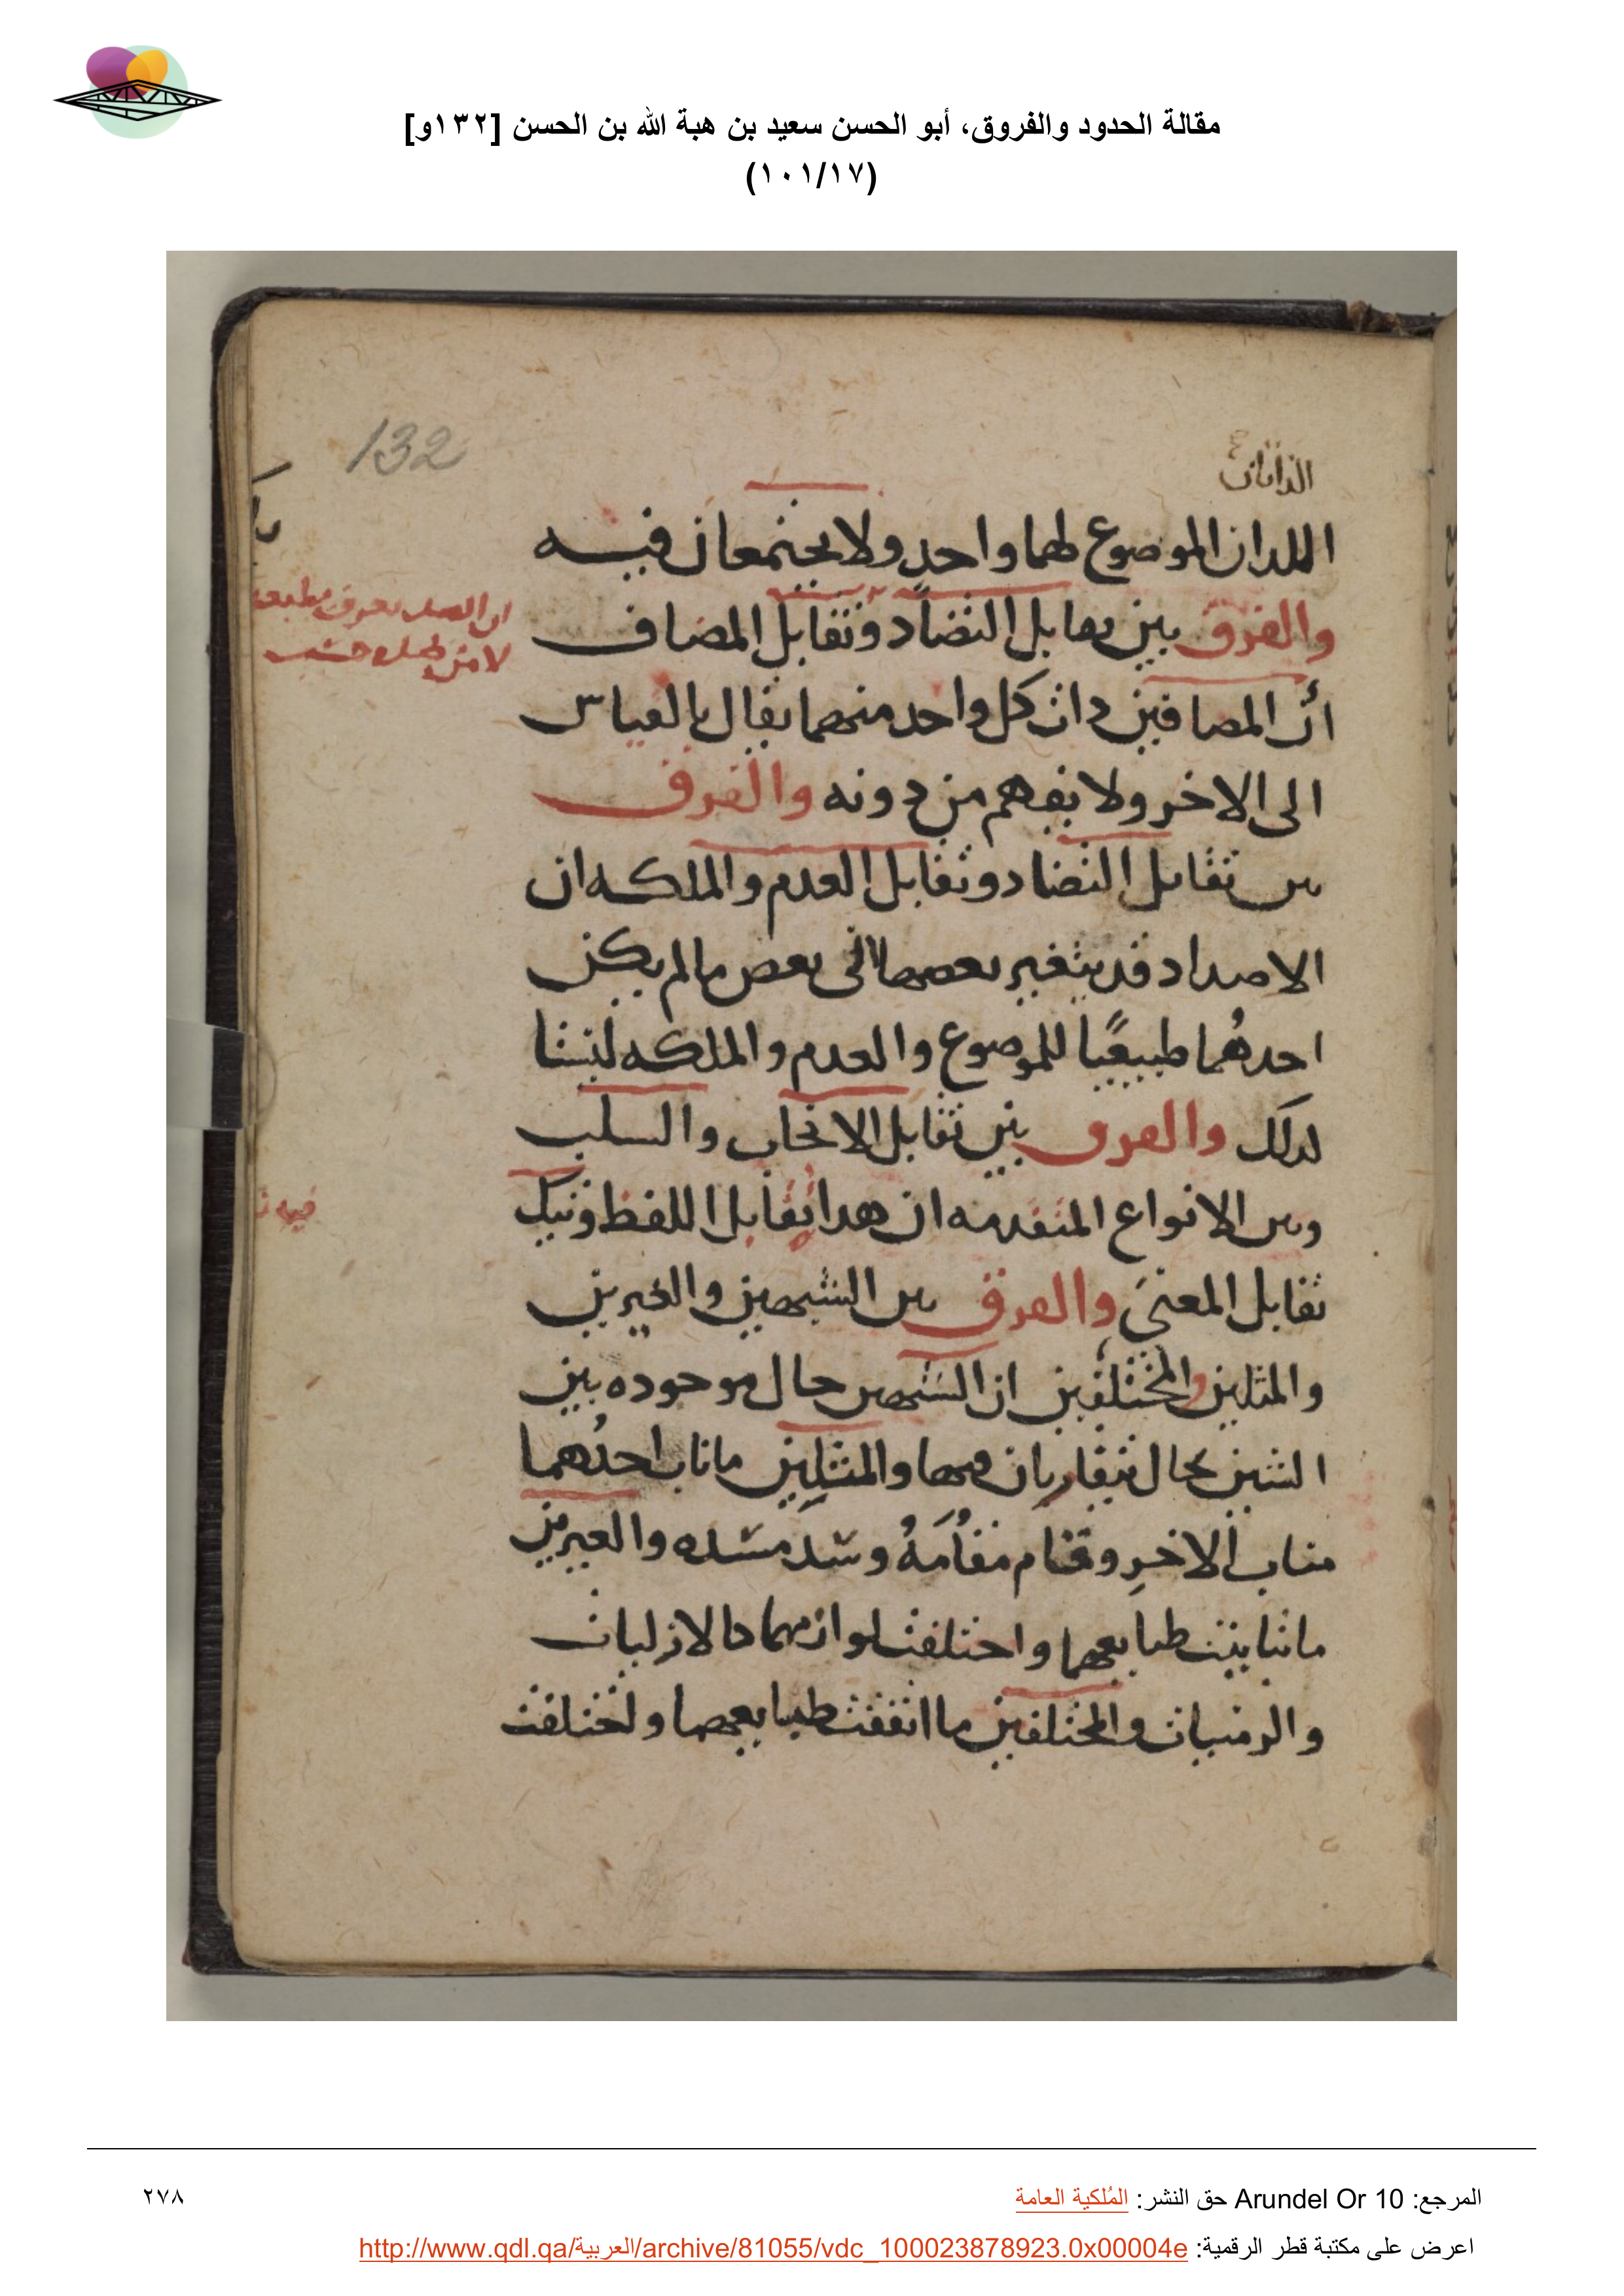 مقالة الحدود والفروق، أبو الحسن سعيد بن هبة الله بن الحسن [١٣٢و]
(١٠١/١٧)
132
اللدان الموضوع لهما واحد ولا يجتمعان فيه
والفرق بين تقابل التضاد وتقابل المضاف
أن المضافين ذات كل واحد منهما يقال بالقياس
الى الاخر ولا يفهم من دونه والفرق
بين تقابل التضاد وتقابل العدم والملكه ان
الاضداد قد يتغير بعضها الى بعض ما لم يكن
احدهُما طبيعيًا للموضوع والعدم والملكه ليستا
لذلك والفرق بين تقابل الايجاب والسلب
وبين الانواع المتقدمه ان هدا تقابل اللفظ وتيك
تقابل المعنى والفرق بين الشبيهين والغيرين
والمثلين والمختلفين ان الشبيهين حال موجوده بين
الشيين بحال يتقاربان فيها والمثلين ما ناب احدُهما
مناب الاخرِ وقام مقامَهُ وسَدَّ مسَده والغيرين
ما تباينت طبايعهما واختلفت لوازمهما كالازليات
والزمنيات والمختلفين ما اتفقت طبايعهما واختلفت
المرجع: Arundel Or 10 حق النشر: المُلكية العامة
٢٧٨
اعرض على مكتبة قطر الرقمية: http://www.qdl.qa/العربية/archive/81055/vdc_100023878923.0x00004e